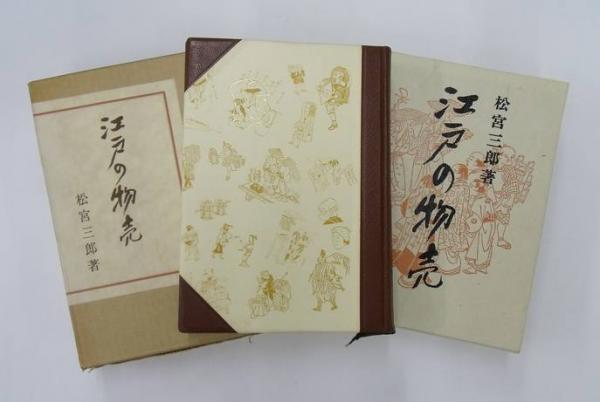 江戸の物売
松宮三郎著
松宮三郎著
江戸の物売